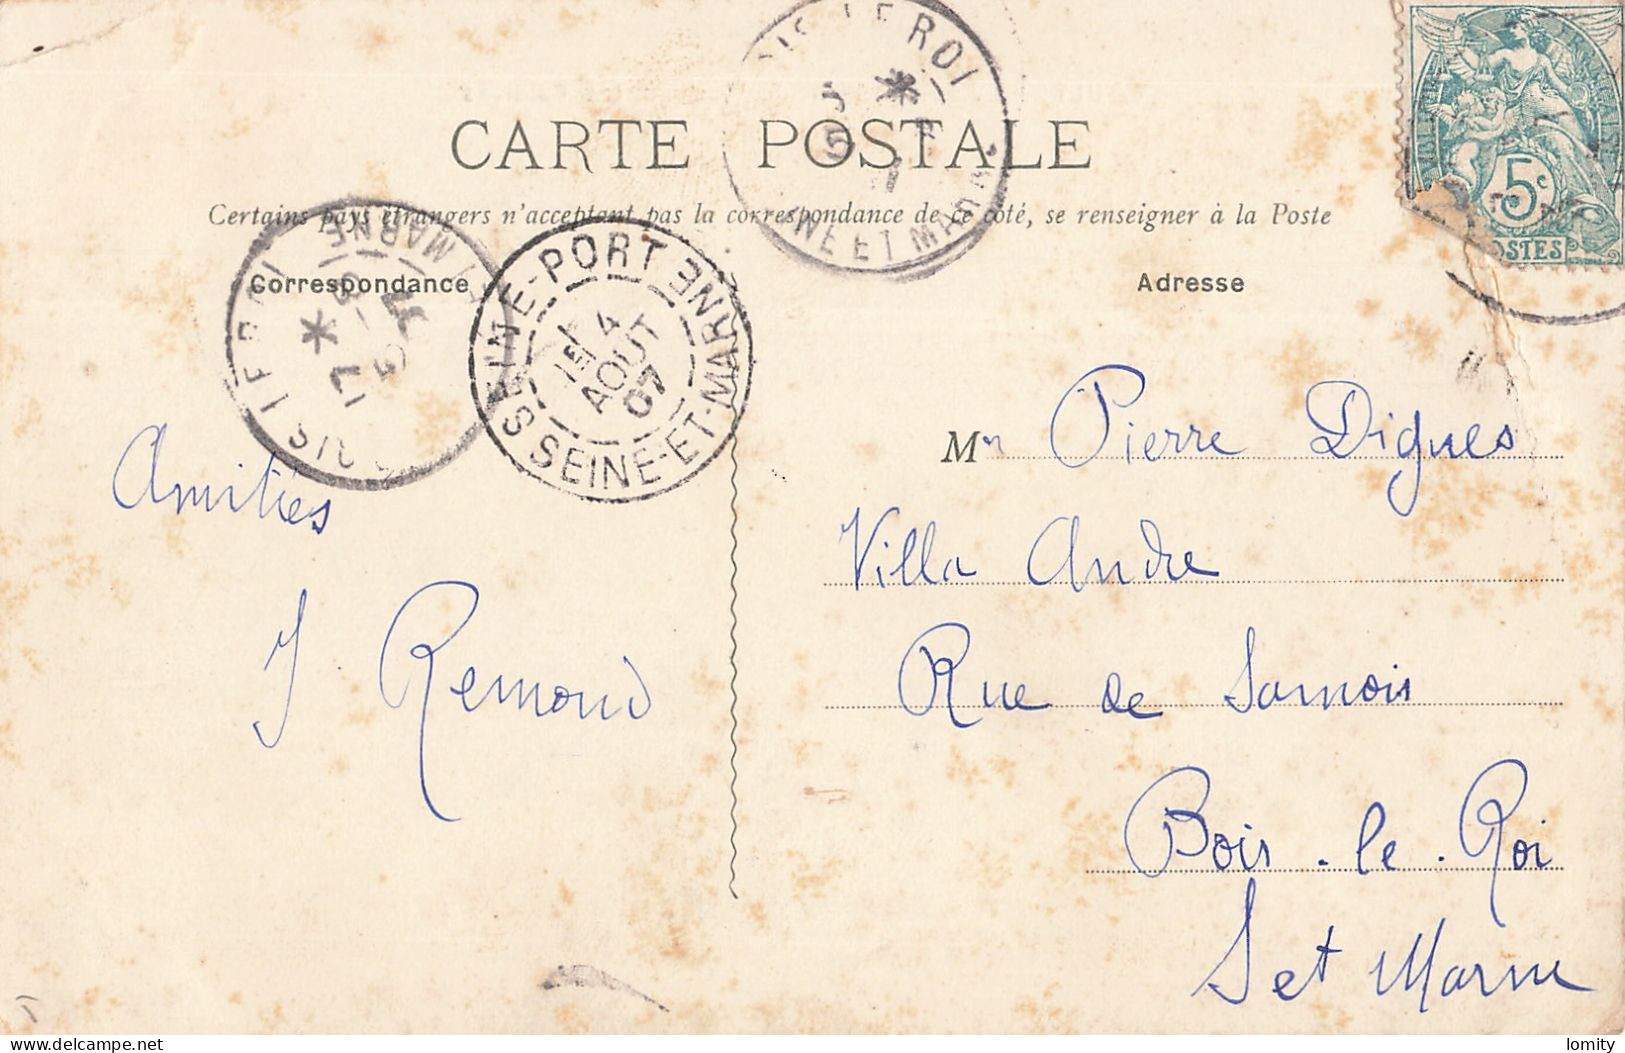 CARTE POSTALE
Certains pays étrangers n'acceptant pas la correspondance de ce côté, se renseigner à la Poste
Correspondance
Adresse
SEINE-PORT
SEINE-ET-MARNE
4
AOUT
07
5c
POSTES
Amitiés
J Remond
Mr Pierre Digues
Villa Andre
Rue de Samois
Bois-le-Roi
S et Marne
© delcampe.net
lomity